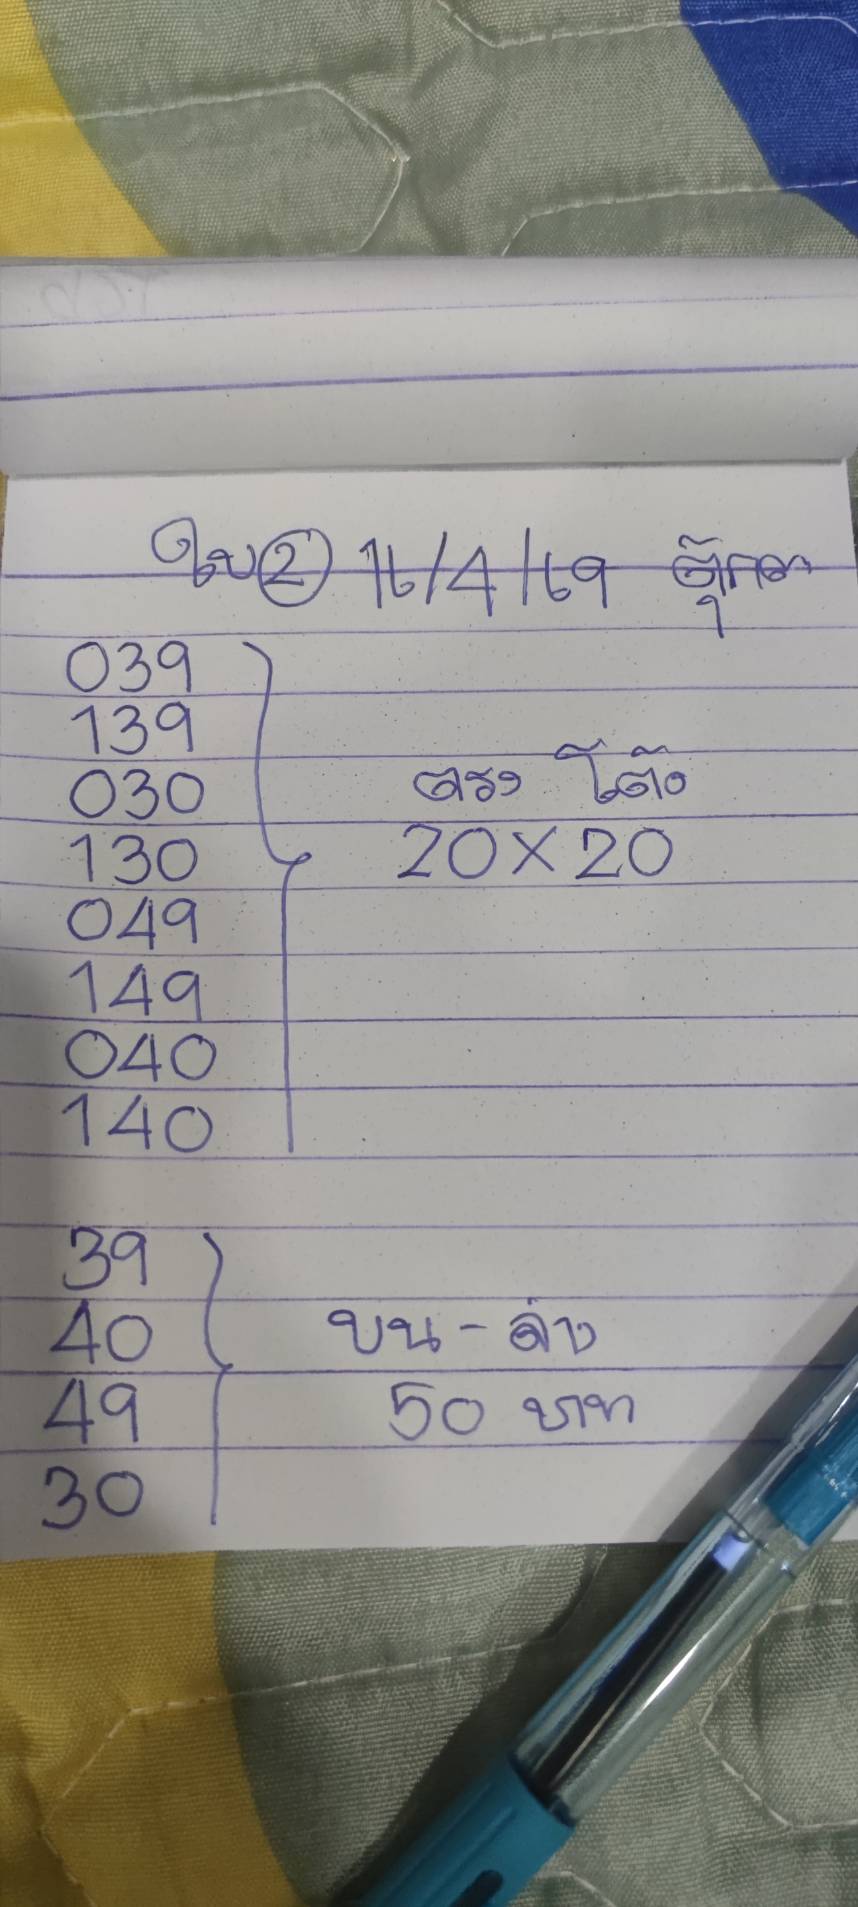 ใบ② 16/4/69 ตุ๊กตา
039
139
030
130
049
149
040
140
ตรง โต๊ด
20×20
39
40
49
30
บน - ล่าง
50 บาท